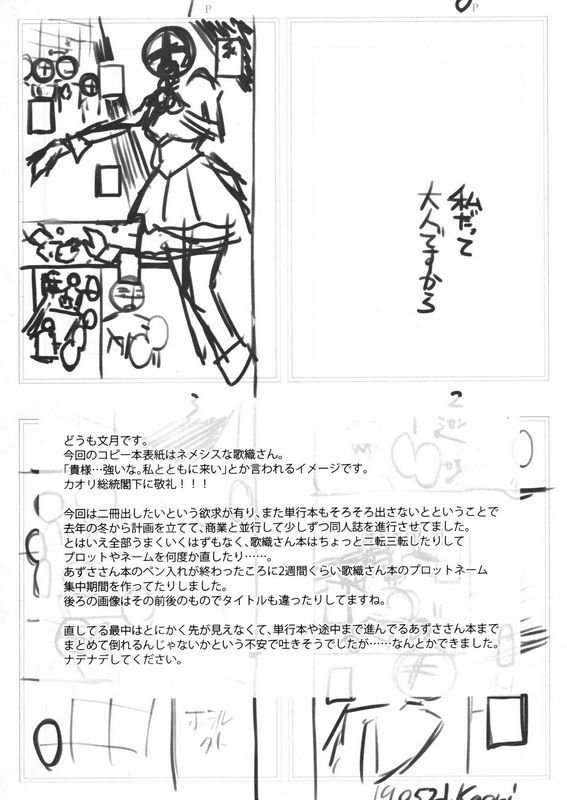 P
P
私だって
大人ですから
3
2
どうも文月です。
今回のコピー本表紙はネメシスな歌織さん。
「貴様…強いな。私とともに来い」とか言われるイメージです。
カオリ総統閣下に敬礼!!!
今回は二冊出したいという欲求が有り、また単行本もそろそろ出さないとということで
去年の冬から計画を立てて、商業と並行して少しずつ同人誌を進行させてました。
とはいえ全部うまくいくはずもなく、歌織さん本はちょっと二転三転したりして
プロットやネームを何度か直したり……。
あずささん本のペン入れが終わったころに2週間くらい歌織さん本のプロットネーム
集中期間を作ってたりしました。
後ろの画像はその前後のものでタイトルも違ったりしてますね。
直してる最中はとにかく先が見えなくて、単行本や途中まで進んでるあずささん本まで
まとめて倒れるんじゃないかという不安で吐きそうでしたが……なんとかできました。
ナデナデしてください。